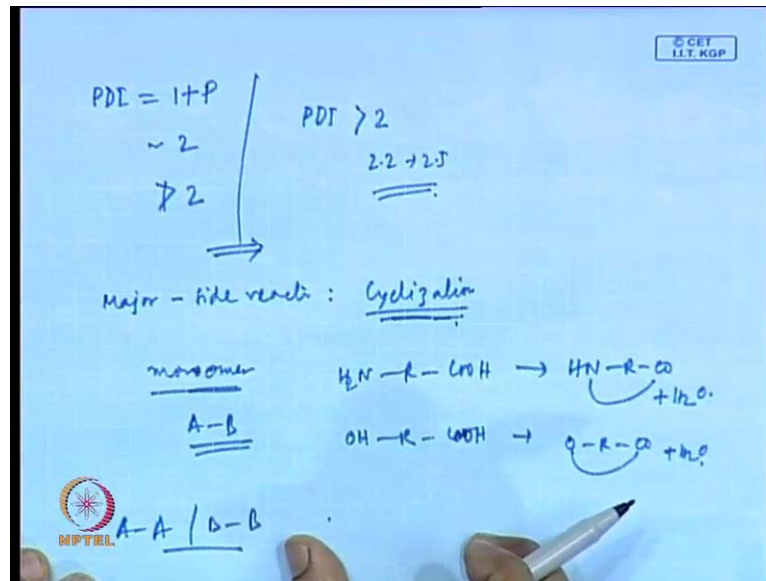 © CET
I.I.T. KGP
PDI = 1+P
~ 2
≯ 2
PDI > 2
2.2 → 2.5
Major - side reacti : Cyclization
monomer
H2N - R - COOH → HN - R - CO
+ H2O.
A - B
OH - R - COOH → O - R - CO + H2O
A - A / B - B
NPTEL